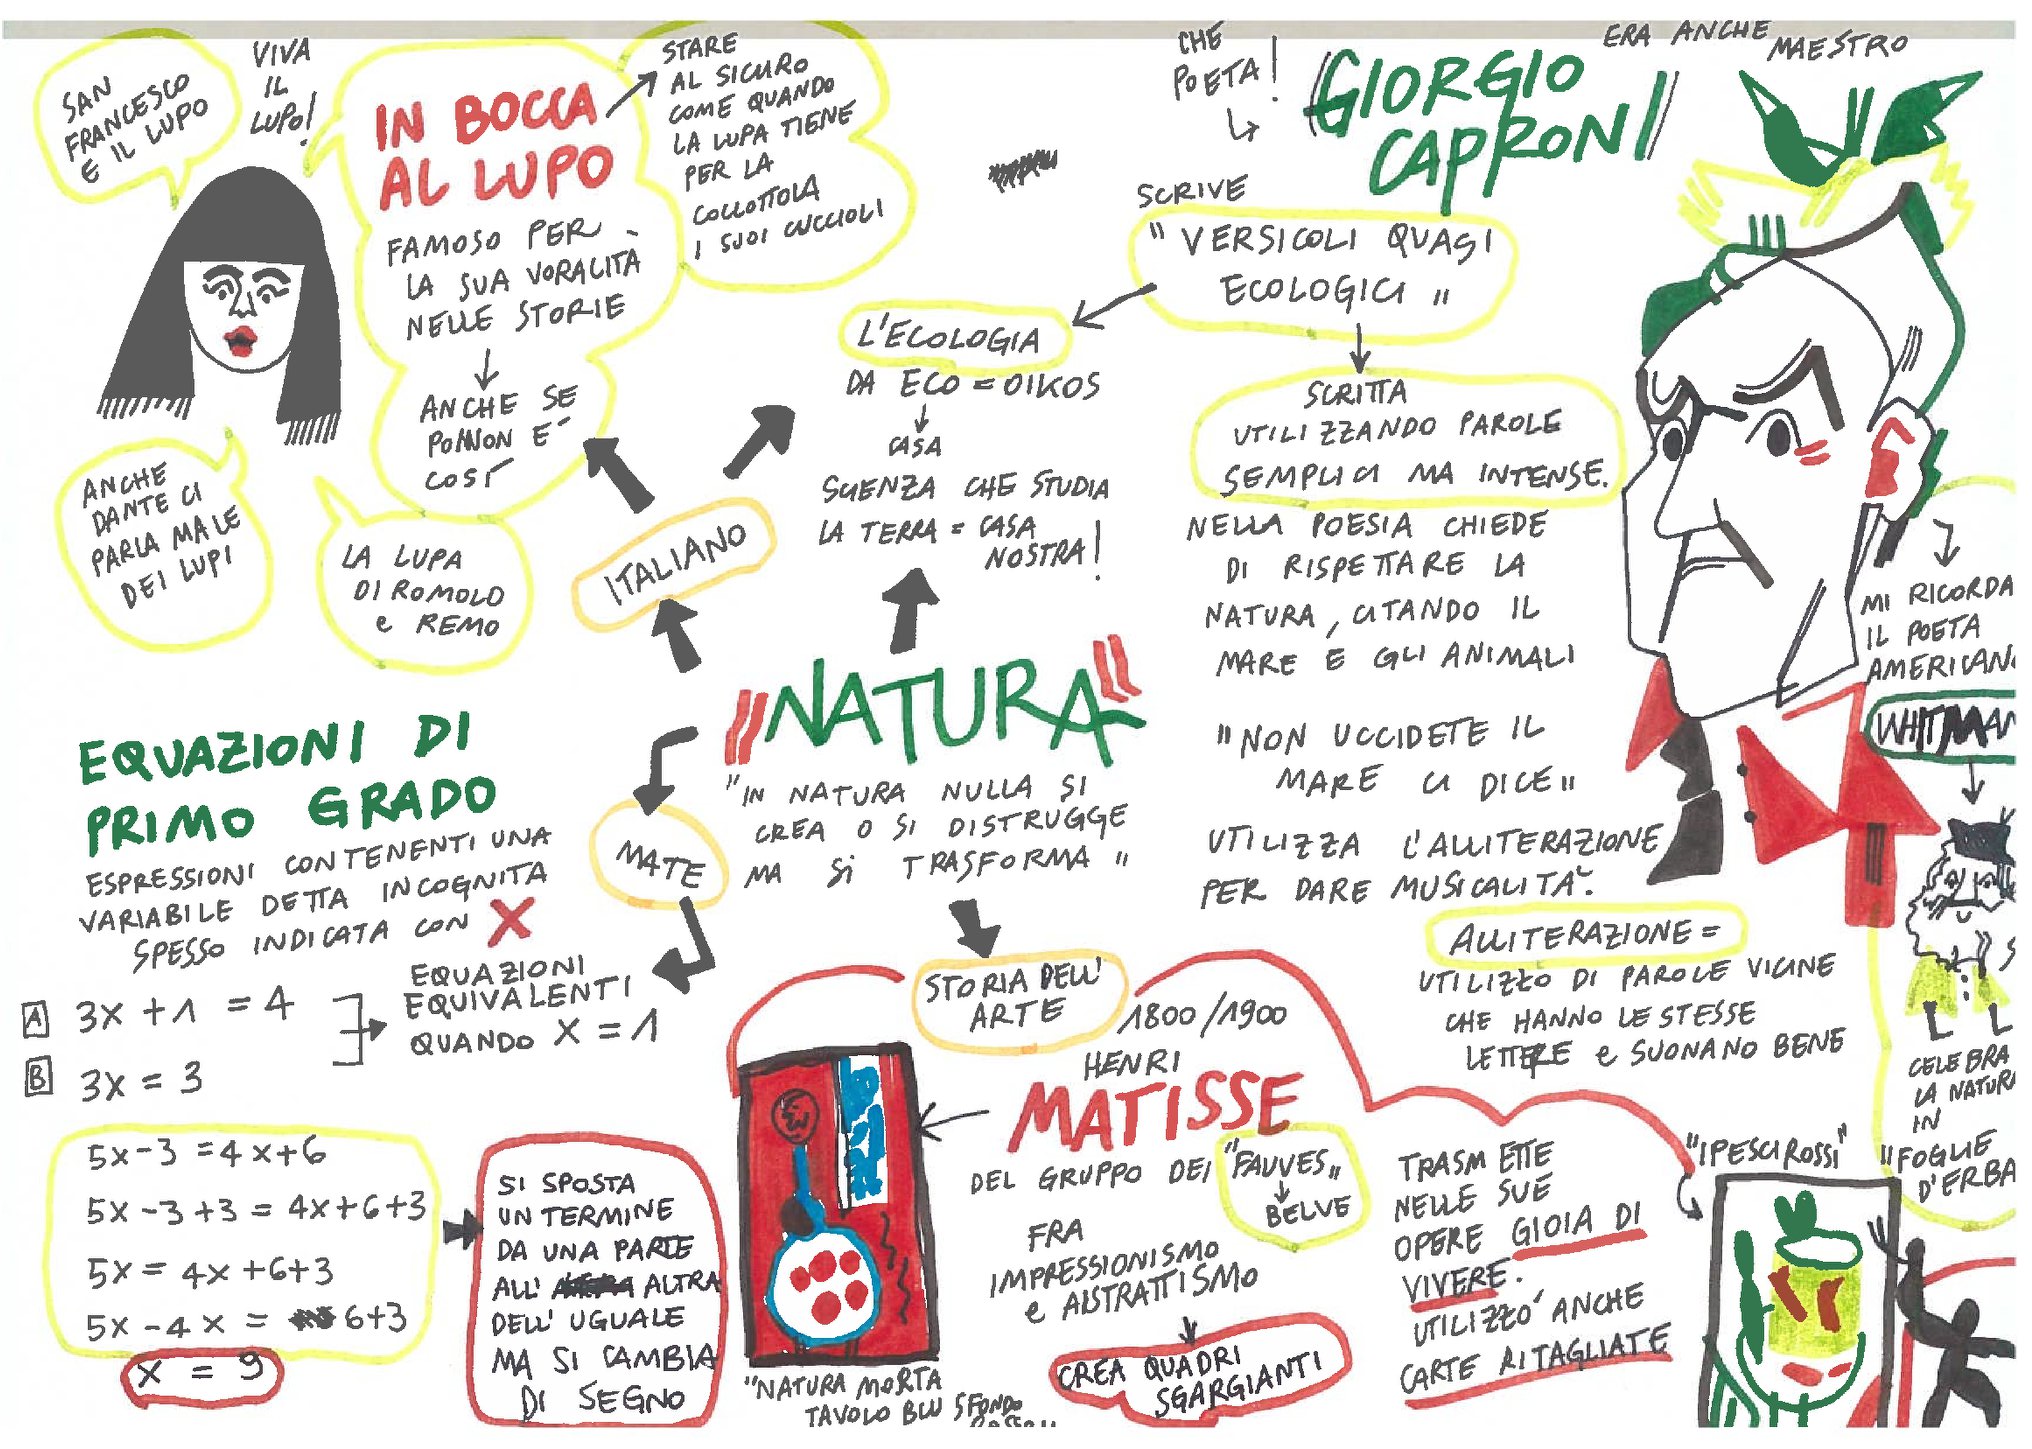 SAN
FRANCESCO
E IL LUPO
VIVA
IL
LUPO!
IN BOCCA
AL LUPO
FAMOSO PER
LA SUA VORACITÀ
NELLE STORIE
ANCHE SE
POI NON E'
COSÌ
STARE
AL SICURO
COME QUANDO
LA LUPA TIENE
PER LA
COLLOTTOLA
I SUOI CUCCIOLI
ANCHE
DANTE CI
PARLA MALE
DEI LUPI
LA LUPA
DI ROMOLO
e REMO
ITALIANO
L'ECOLOGIA
DA ECO = OIKOS
CASA
SCIENZA CHE STUDIA
LA TERRA = CASA
NOSTRA!
CHE
POETA!
GIORGIO
CAPRONI
ERA ANCHE
MAESTRO
SCRIVE
"VERSICOLI QUASI
ECOLOGICI"
SCRITTA
UTILIZZANDO PAROLE
SEMPLICI MA INTENSE.
NELLA POESIA CHIEDE
DI RISPETTARE LA
NATURA, CITANDO IL
MARE E GLI ANIMALI
"NON UCCIDETE IL
MARE CI DICE"
UTILIZZA L'ALLITERAZIONE
PER DARE MUSICALITA'.
ALLITERAZIONE =
UTILIZZO DI PAROLE VICINE
CHE HANNO LE STESSE
LETTERE e SUONANO BENE
MI RICORDA
IL POETA
AMERICAN
WHITMAN
CELEBRA
LA NATURA
IN
"FOGLIE
D'ERBA
"NATURA"
"IN NATURA NULLA SI
CREA O SI DISTRUGGE
MA SI TRASFORMA"
MATE
EQUAZIONI DI
PRIMO GRADO
ESPRESSIONI CONTENENTI UNA
VARIABILE DETTA INCOGNITA
SPESSO INDICATA CON X
A 3x + 1 = 4
B 3x = 3
EQUAZIONI
EQUIVALENTI
QUANDO X = 1
5x - 3 = 4x + 6
5x - 3 + 3 = 4x + 6 + 3
5x = 4x + 6 + 3
5x - 4x = 6 + 3
x = 9
SI SPOSTA
UN TERMINE
DA UNA PARTE
ALL' ALTRA
DELL' UGUALE
MA SI CAMBIA
DI SEGNO
STORIA DELL'
ARTE
1800/1900
HENRI
MATISSE
DEL GRUPPO DEI "FAUVES"
BELVE
FRA
IMPRESSIONISMO
e ASTRATTISMO
CREA QUADRI
SGARGIANTI
"NATURA MORTA
TAVOLO BLU SFONDO
TRASMETTE
NELLE SUE
OPERE GIOIA DI
VIVERE.
UTILIZZO' ANCHE
CARTE RITAGLIATE
"I PESCI ROSSI"